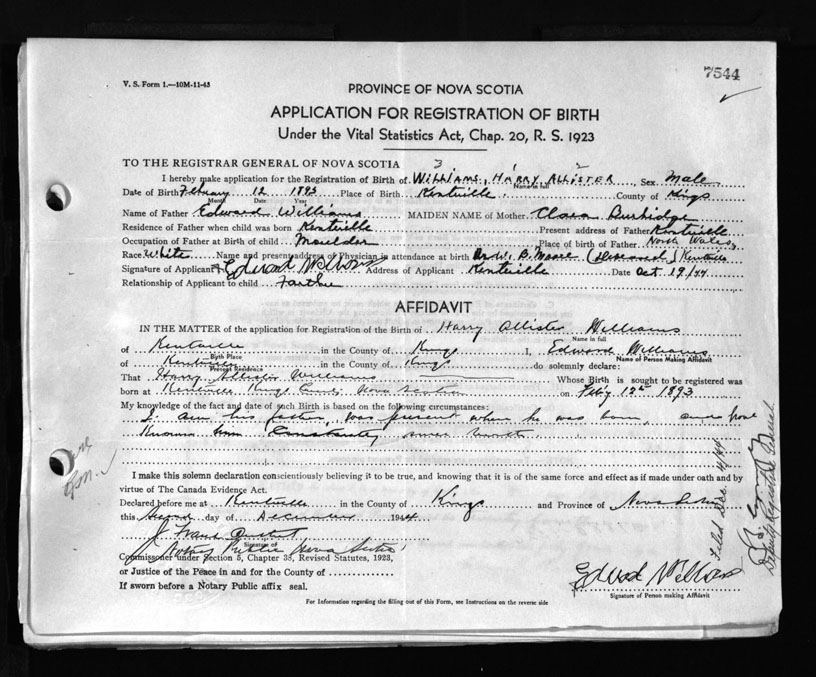 7544
V. S. Form 1.—10M-11-43
PROVINCE OF NOVA SCOTIA
APPLICATION FOR REGISTRATION OF BIRTH
Under the Vital Statistics Act, Chap. 20, R. S. 1923
TO THE REGISTRAR GENERAL OF NOVA SCOTIA
3 1 2
I hereby make application for the Registration of Birth of Williams, Harry Allister Sex Male
Name in full
Date of Birth February 12 1893 Place of Birth Kentville County of Kings
Month Date Year
Name of Father Edward Williams MAIDEN NAME of Mother Clara Burbidge
Residence of Father when child was born Kentville Present address of Father Kentville
Occupation of Father at Birth of child Moulder Place of birth of Father North Wales
Race White Name and present address of Physician in attendance at birth Dr W. B. Moore (Deceased) Kentville
Signature of Applicant Edward Williams Address of Applicant Kentville Date Oct 19/44
Relationship of Applicant to child Farther
AFFIDAVIT
IN THE MATTER of the application for Registration of the Birth of Harry Allister Williams
Name in full
of Kentville in the County of Kings I, Edward Williams
Birth Place Name of Person Making Affidavit
of Kentville in the County of Kings do solemnly declare:
Present Residence
That Harry Allister Williams Whose Birth is sought to be registered was
born at Kentville Kings County Nova Scotia on Feb'y 12th 1893
My knowledge of the fact and date of such Birth is based on the following circumstances:
I am his father, was present when he was born, and have
Known him Constantly since birth.
I make this solemn declaration conscientiously believing it to be true, and knowing that it is of the same force and effect as if made under oath and by
virtue of The Canada Evidence Act.
Declared before me at Kentville in the County of Kings and Province of Nova Scotia
this Second day of December 1944
J. Frank
Signature of
Notary Public Nova Scotia
Commissioner under Section 5, Chapter 38, Revised Statutes, 1923,
or Justice of the Peace in and for the County of
If sworn before a Notary Public affix seal.
Edward Williams
Signature of Person making Affidavit
For Information regarding the filling out of this Form, see Instructions on the reverse side
Filed Dec. 4/44
Deputy Registrar General